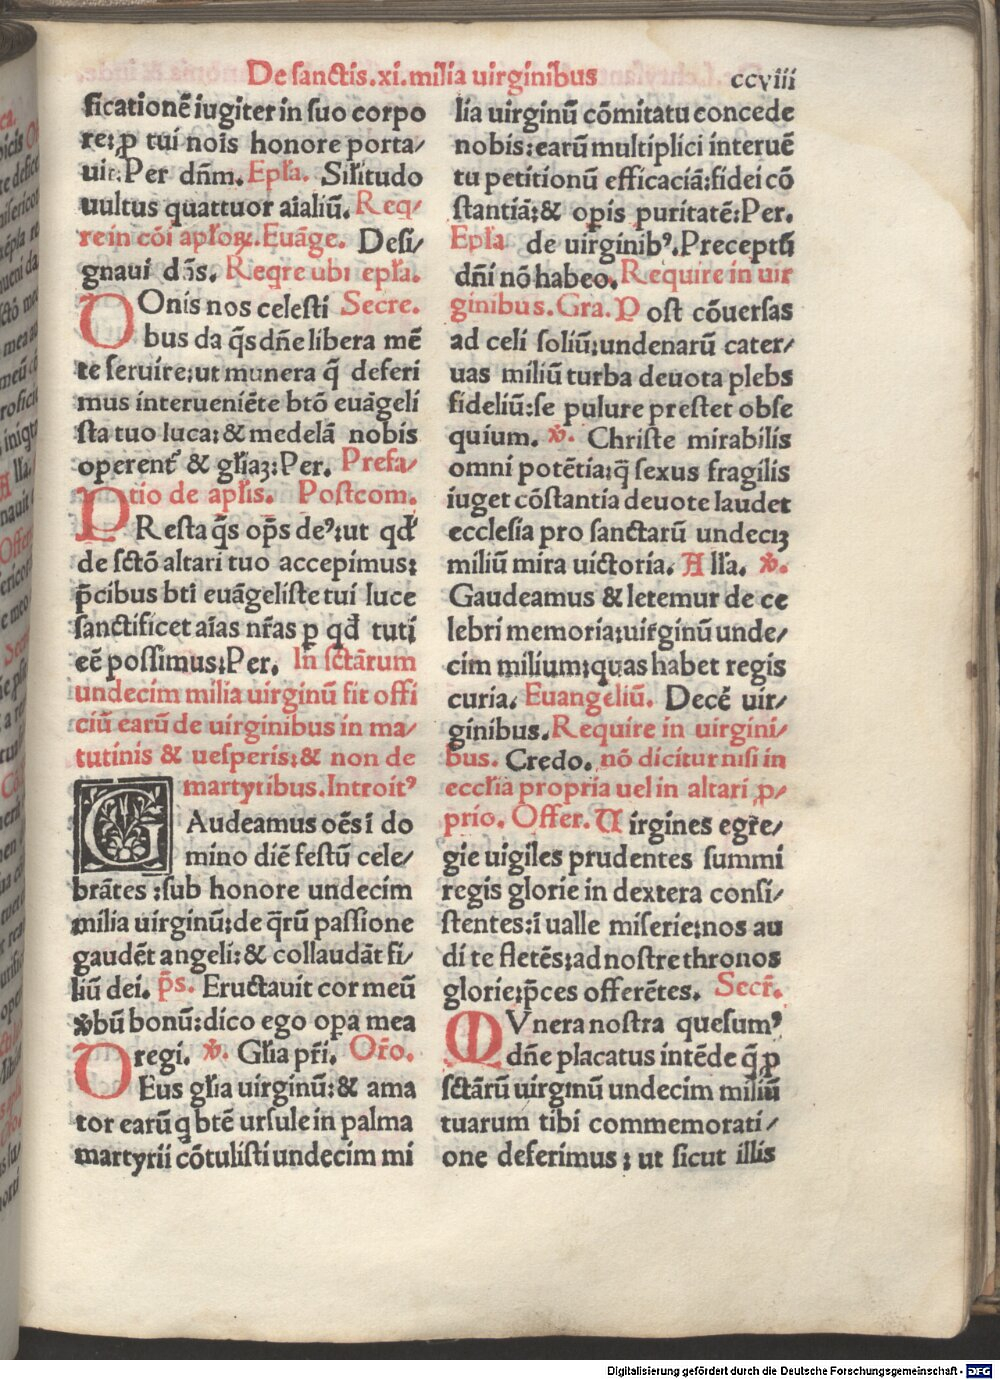 De sanctis.xi.milia uirginibus
ccviii
ficationē iugiter in suo corpo
re:ꝓ tui nois honore porta/
uit.Per dn̄m. Epl̄a. Sil̄itudo
uultus quattuor aīaliū. Req̄/
re in cōi apl̄oꝝ. Euāge. Desi/
gnaui dn̄s. Req̄re ubi epl̄a.
DOnis nos celesti Secre.
bus da q̄s dn̄e libera mē
te seruire:ut munera q̄ deferi
mus interueniēte btō euāgeli
sta tuo luca:& medelā nobis
operent᷑ & gl̄iaꝫ:Per. Prefa/
tio de apl̄is. Postcom.
PResta q̄s op̄s deꝰ:ut qd̄
de sctō altari tuo accepimus:
p̄cibus bti euāgeliste tui luce
sanctificet aīas nr̄as ꝑ qd̄ tuti
eē possimus:Per. In sctārum
undecim milia uirginū fit offi
ciū earū de uirginibus in ma/
tutinis & uesperis:& non de
martyribus.Introitꝰ
GAudeamus oēs ī do
mino diē festū cele/
brātes :sub honore undecim
milia uirginū:de q̄rū passione
gaudēt angeli:& collaudāt fi/
liū dei. p̄s. Eructauit cor meū
ꝟbū bonū:dico ego opa mea
regi. ℣. Gl̄ia pr̄i. Or̄o.
DEus gl̄ia uirginū:& ama
tor earū q btē ursule in palma
martyrii cōtulisti undecim mi
lia uirginū cōmitatu concede
nobis:earū multiplici interuē
tu petitionū efficaciā:fidei cō
stantiā:& opis puritatē:Per.
Epl̄a de uirginibꝰ.Preceptū
dn̄i nō habeo. Require in uir
ginibus. Gra. Post cōuersas
ad celi soliū:undenarū cater/
uas miliū turba deuota plebs
fideliū:se pulure prestet obse
quium. ℣. Christe mirabilis
omni potētia:q̄ sexus fragilis
iuget cōstantia deuote laudet
ecclesia pro sanctarū undeciꝫ
miliū mira uictoria. All̄a. ℣.
Gaudeamus & letemur de ce
lebri memoria:uirginū unde/
cim milium:quas habet regis
curia. Euangeliū. Decē uir/
ginibus. Require in uirgini/
bus. Credo. nō dicitur nisi in
eccl̄ia propria uel in altari ꝓ/
prio. Offer. Uirgines egre/
gie uigiles prudentes summi
regis glorie in dextera consi/
stentes:ī ualle miserie:nos au
di te fletēs:ad nostre thronos
glorie:p̄ces offerētes. Secr̄.
MVnera nostra quesumꝰ
dn̄e placatus intēde q̄ ꝓ
sctārū uirginū undecim miliū
tuarum tibi commemorati/
one deferimus : ut sicut illis
Digitalisierung gefördert durch die Deutsche Forschungsgemeinschaft - DFG